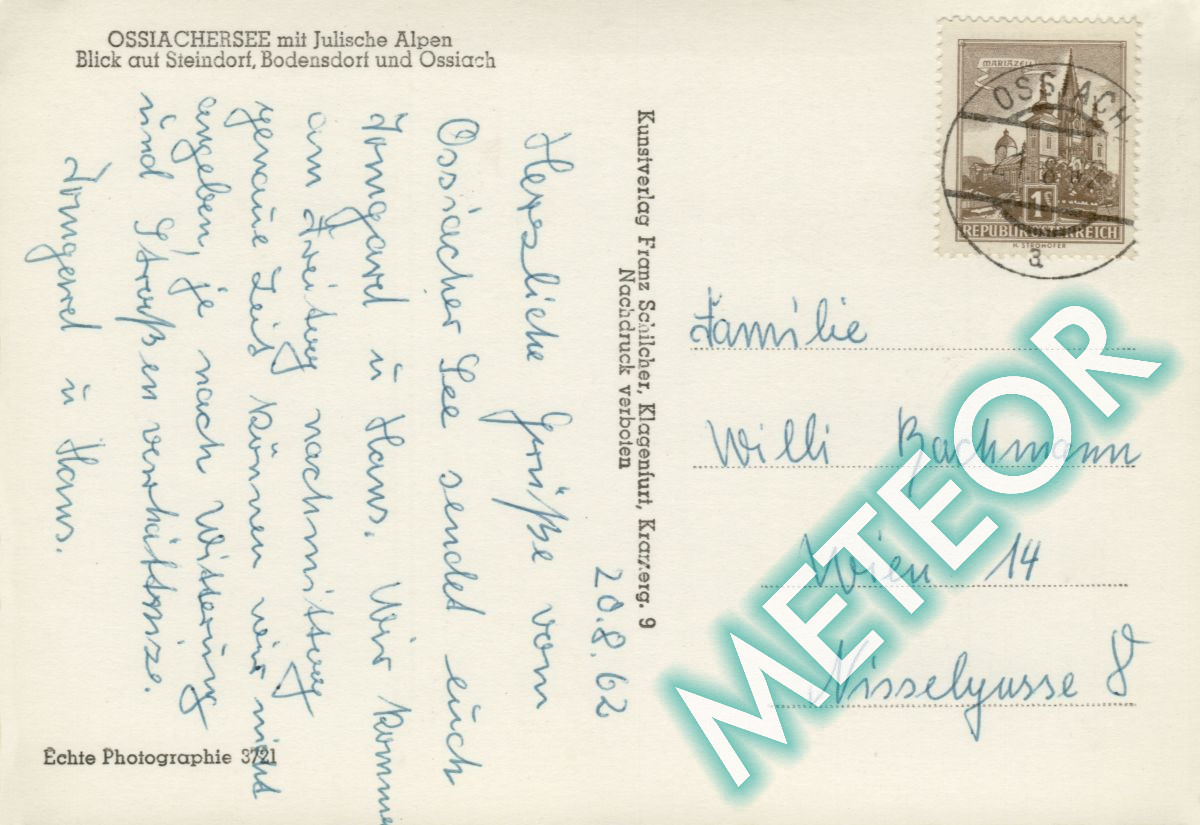 OSSIACHERSEE mit Julische Alpen
Blick auf Steindorf, Bodensdorf und Ossiach
MARIAZELL
OSSIACH
a
1S
REPUBLIK ÖSTERREICH
H. STROHOFER
Kunstverlag Franz Schilcher, Klagenfurt, Kranzerg. 9
Nachdruck verboten
20.8.62
Herzliche Grüße vom
Ossiacher See sendet euch
Irmgard u Hans. Wir kommen
am Freitag nachmittag
genaue Zeit können wir nicht
angeben, je nach Witterung
und Straßenverhältnisse.
Irmgard u Hans.
Familie
Willi Bachmann
Wien 14
Nisselgasse 8
METEOR
Echte Photographie 3721